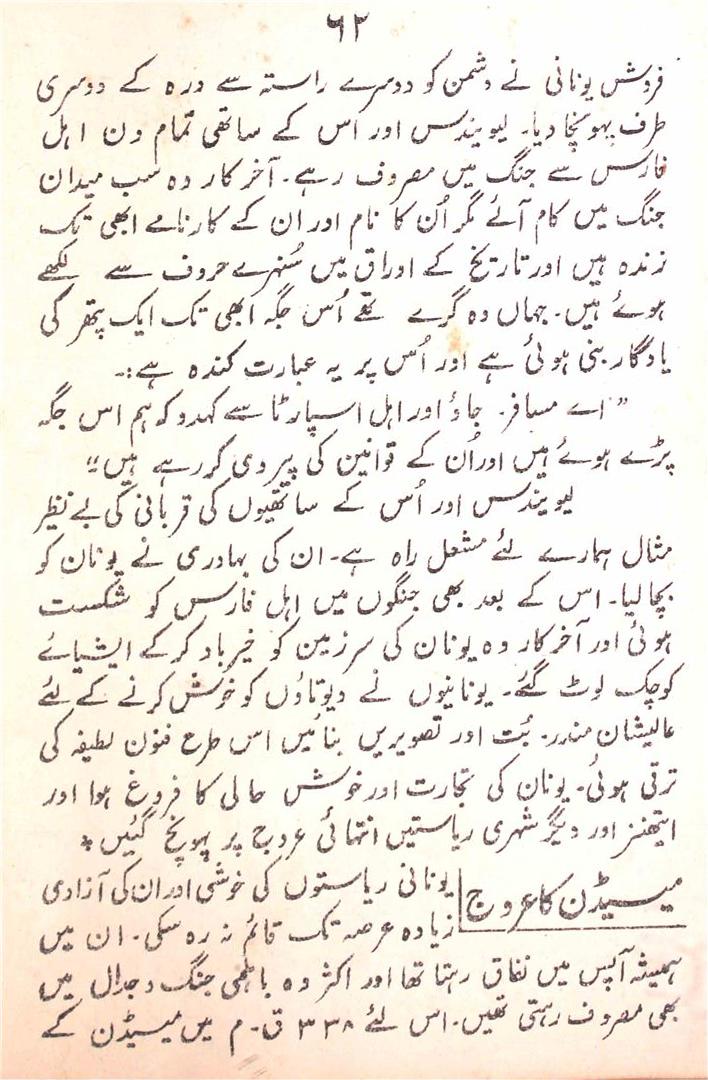 ۶۲
فروش یونانی نے دشمن کو دوسرے راستہ سے درہ کے دوسری
طرف پہونچا دیا۔ لیونیدس اور اس کے ساتھی تمام دن اہل
فارس سے جنگ میں مصروف رہے۔ آخر کار وہ سب میدان
جنگ میں کام آئے مگر اُن کا نام اور ان کے کارنامے ابھی تک
زندہ ہیں اور تاریخ کے اوراق میں سُنہرے حروف سے لکھے
ہوئے ہیں۔ جہاں وہ گرے تھے اُس جگہ ابھی تک ایک پتھر کی
یادگار بنی ہوئی ہے اور اُس پر یہ عبارت کندہ ہے:۔
”اے مسافر۔ جاؤ اور اہل اسپارٹا سے کہدو کہ ہم اس جگہ
پڑے ہوئے ہیں اور اُن کے قوانین کی پیروی کر رہے ہیں“
لیونیدس اور اُس کے ساتھیوں کی قربانی کی بے نظیر
مثال ہمارے لئے مشعل راہ ہے۔ ان کی بہادری نے یونان کو
بچا لیا۔ اس کے بعد بھی جنگوں میں اہل فارس کو شکست
ہوئی اور آخر کار وہ یونان کی سرزمین کو خیرباد کر کے ایشیائے
کوچک لوٹ گئے۔ یونانیوں نے دیوتاؤں کو خوش کرنے کے لئے
عالیشان مندر۔ بُت اور تصویریں بنائیں اس طرح فنون لطیفہ کی
ترقی ہوئی۔ یونان کی تجارت اور خوش حالی کا فروغ ہوا اور
ایتھنز اور دیگر شہری ریاستیں انتہائی عروج پر پہونچ گئیں *
میسیڈن کا عروج
یونانی ریاستوں کی خوشی اور ان کی آزادی
زیادہ عرصہ تک قائم نہ رہ سکی۔ ان میں
ہمیشہ آپس میں نفاق رہتا تھا اور اکثر وہ باہمی جنگ و جدال میں
بھی مصروف رہتی تھیں۔ اس لئے ۳۳۸ ق۔م میں میسیڈن کے